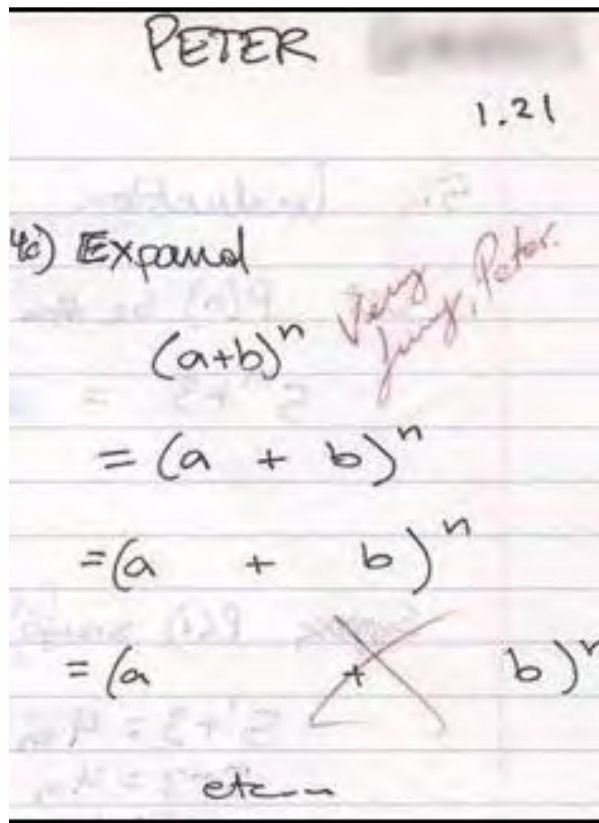 PETER
1.21
4c) Expand
Very
funny, Peter.
(a+b)ⁿ
= (a + b)ⁿ
= (a + b)ⁿ
= (a + b)ⁿ
etc...